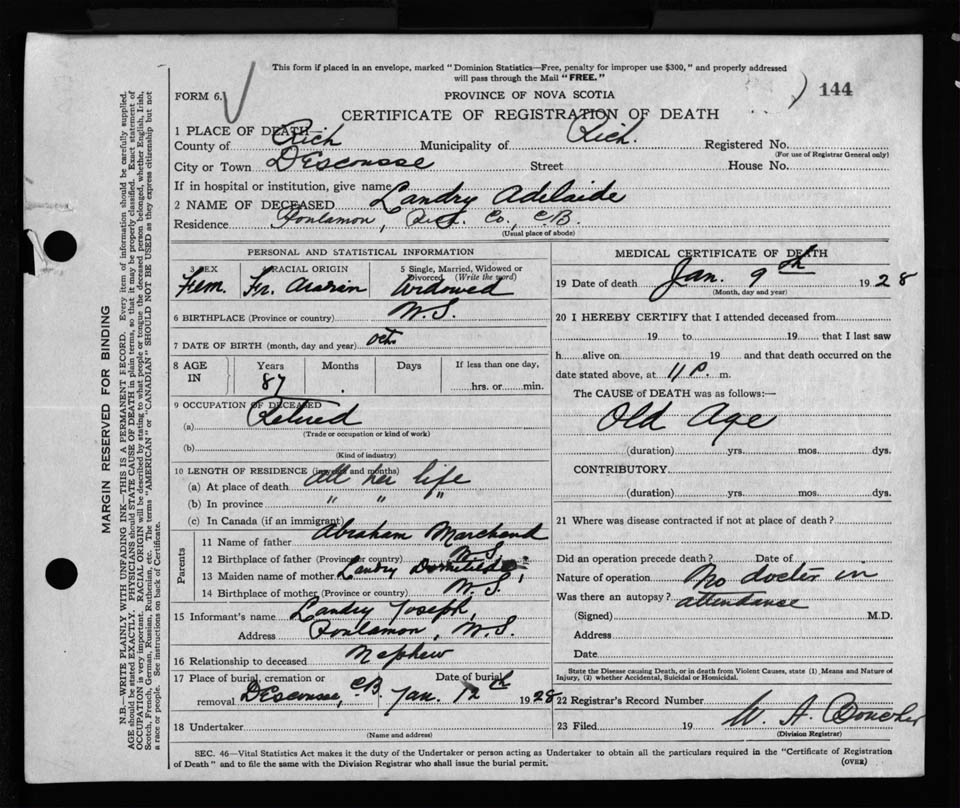 This form if placed in an envelope, marked "Dominion Statistics—Free, penalty for improper use $300," and properly addressed
will pass through the Mail "FREE."
FORM 6.
PROVINCE OF NOVA SCOTIA
144
CERTIFICATE OF REGISTRATION OF DEATH
1 PLACE OF DEATH—
County of Rich Municipality of Rich. Registered No.
(For use of Registrar General only)
City or Town Descousse Street House No.
If in hospital or institution, give name
2 NAME OF DECEASED Landry Adelaide
Residence Poulamon, Co., C.B.
(Usual place of abode)
PERSONAL AND STATISTICAL INFORMATION
3 SEX RACIAL ORIGIN 5 Single, Married, Widowed or
Divorced (Write the word)
Fem. Fr. Widowed
6 BIRTHPLACE (Province or country) N.S.
7 DATE OF BIRTH (month, day and year) Oct.
8 AGE IN Years Months Days If less than one day,
87 hrs. or min.
9 OCCUPATION OF DECEASED
(a) Retired
(Trade or occupation or kind of work)
(b)
(Kind of industry)
10 LENGTH OF RESIDENCE (in years and months)
(a) At place of death All her life
(b) In province " " "
(c) In Canada (if an immigrant)
Parents
11 Name of father Abraham Marchand
12 Birthplace of father (Province or country) N.S.
13 Maiden name of mother Landry
14 Birthplace of mother (Province or country) N.S.
15 Informant's name Landry Joseph,
Address Poulamon, N.S.
16 Relationship to deceased Nephew
17 Place of burial, cremation or Date of burial
removal Descousse, C.B. Jan. 12th 1928
18 Undertaker
(Name and address)
MEDICAL CERTIFICATE OF DEATH
19 Date of death Jan. 9th 1928
(Month, day and year)
20 I HEREBY CERTIFY that I attended deceased from
19 to 19 that I last saw
h alive on 19 and that death occurred on the
date stated above, at 11 P. m.
The CAUSE of DEATH was as follows:—
Old Age
(duration) yrs. mos. dys.
CONTRIBUTORY
(duration) yrs. mos. dys.
21 Where was disease contracted if not at place of death?
Did an operation precede death? Date of
Nature of operation No doctor in
Was there an autopsy? attendance
(Signed) M.D.
Address
Date
State the Disease causing Death, or in death from Violent Causes, state (1) Means and Nature of
Injury, (2) whether Accidental, Suicidal or Homicidal.
22 Registrar's Record Number
23 Filed 19 W. A. Boucher
(Division Registrar)
SEC. 46—Vital Statistics Act makes it the duty of the Undertaker or person acting as Undertaker to obtain all the particulars required in the "Certificate of Registration
of Death" and to file the same with the Division Registrar who shall issue the burial permit.
(OVER)
MARGIN RESERVED FOR BINDING
N.B.—WRITE PLAINLY WITH UNFADING INK—THIS IS A PERMANENT RECORD. Every item of information should be carefully supplied.
AGE should be stated EXACTLY. PHYSICIANS should STATE CAUSE OF DEATH in plain terms, so that it may be properly classified. Exact statement of
OCCUPATION is very important. RACIAL ORIGIN will be described by stating to what people or tongue the deceased person belonged, whether English, Irish,
Scotch, French, German, Russian, Ruthenian, etc. The terms "AMERICAN" or "CANADIAN" SHOULD NOT BE USED as they express citizenship but not
a race or people. See instructions on back of Certificate.